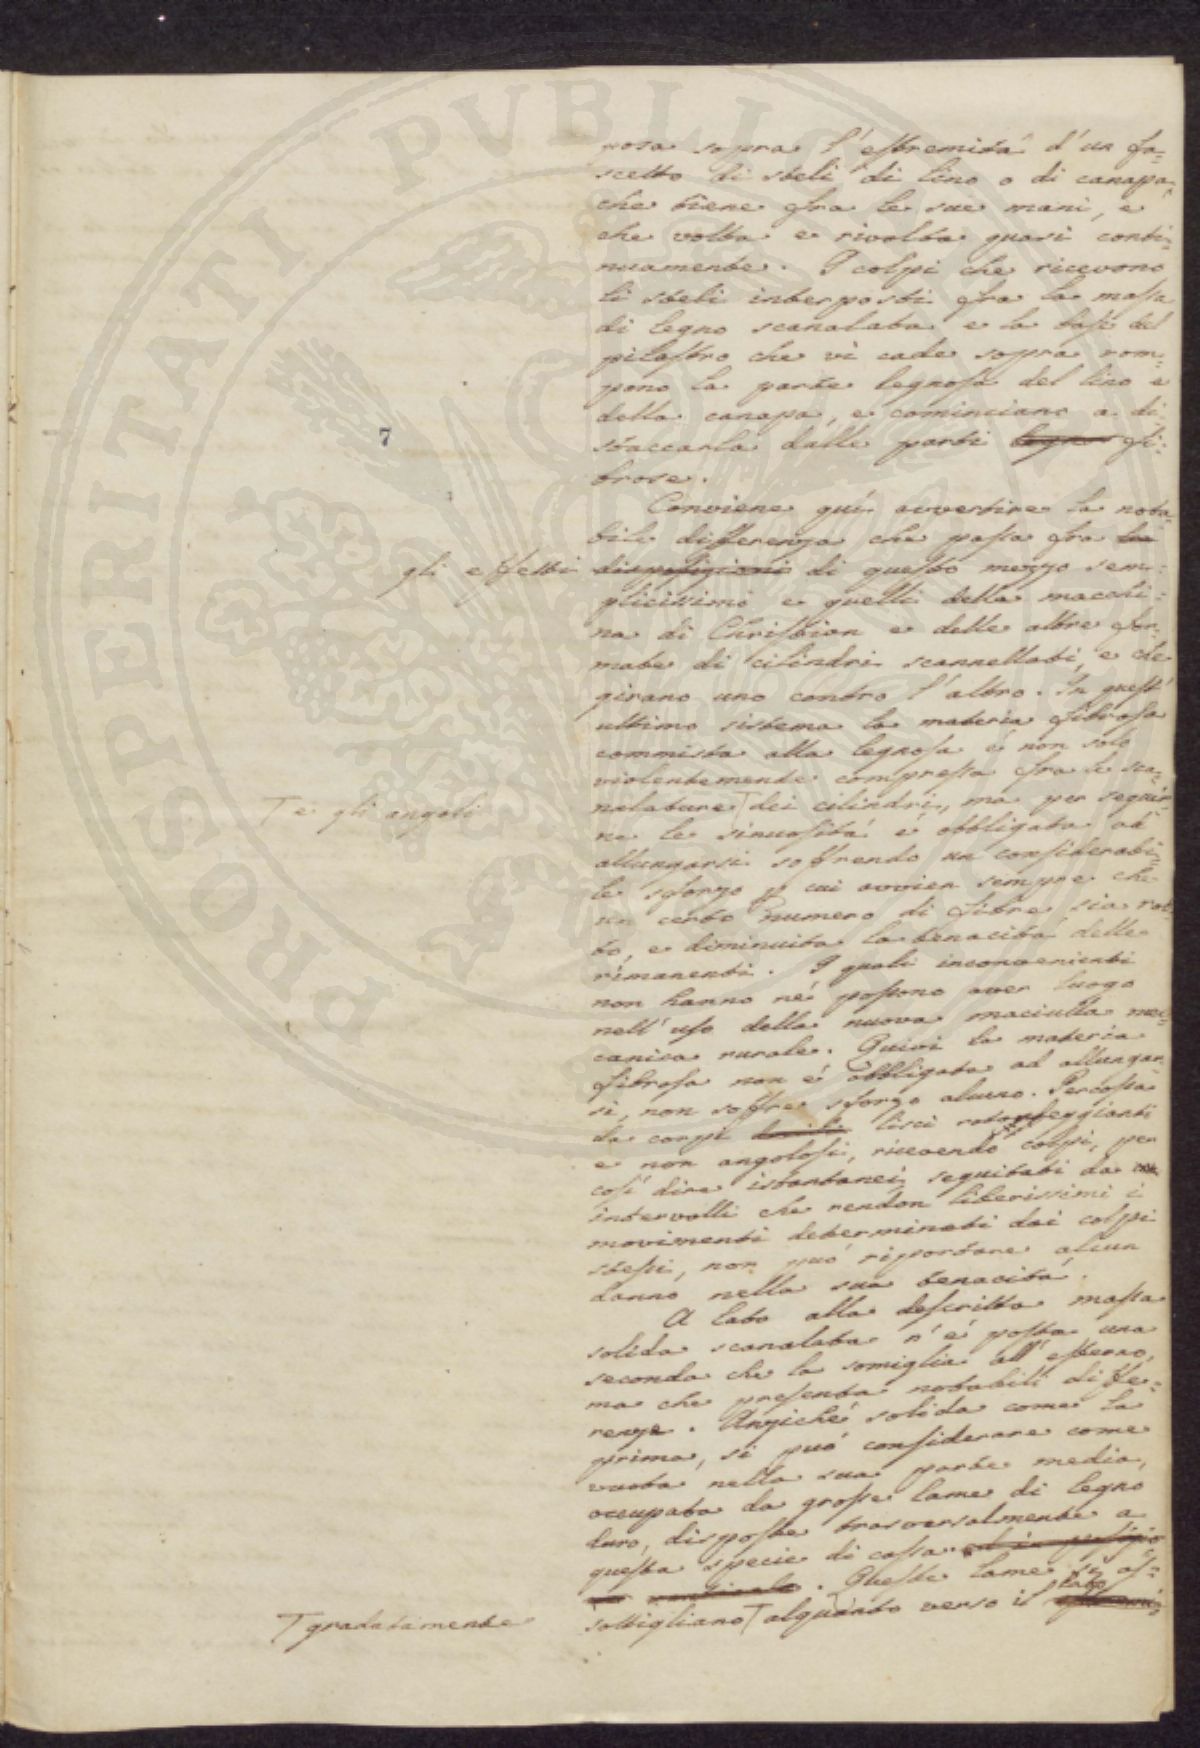 posa sopra l'estremità d'un fa=
scetto di steli di lino o di canapa,
che tiene fra le sue mani, e
che volta e rivolta quasi conti=
nuamente. I colpi che ricevono
li steli interposti fra la massa
di legno scanalata e la base del
pilastro che vi cade sopra rom=
pono la parte legnosa del lino e
della canapa, e cominciano a di
staccarla dalle parti legno fi=
brose.
Conviene quì avvertire la nota=
bile differenza che passa fra le
gli effetti disposizioni di questo mezzo sem=
plicissimo e quelli della macchi=
na di Christian e delle altre for=
mate di cilindri scannellati, e che
girano uno contro l'altro. In quest'
ultimo sistema la materia fibrosa
commista alla legnosa è non solo
violentemente compressa fra le sca=
nalature dei cilindri, ma per seguir=
T e gli angoli
ne le sinuosità è obbligata ad
allungarsi soffrendo un considerabi=
le sforzo p cui avvien sempre che
un certo numero di fibre sia rot
to, e diminuita la tenacità delle
rimanenti. I quali inconvenienti
non hanno nè possono aver luogo
nell'uso della nuova maciulla mec=
canica rurale. Quivi la materia
fibrosa non è obbligata ad allungar
si, non soffre sforzo alcuno. Percossa
da corpi lisci rotondeggianti
e non angolosi, ricevendo colpi, per
così dire istantanei seguitati da
intervalli che rendon liberissimi i
movimenti determinati dai colpi
stessi, non può riportare alcun
danno nella sua tenacità.
A lato alla descritta massa
solida scanalata n'è posta una
seconda che la somiglia all'esterno,
ma che presenta notabili diffe=
renze. Anziché solida come la
prima, si può considerare come
vuota nella sua parte media,
occupata da grosse lame di legno
duro, disposte trasversalmente a
questa specie di cassa ed in posizio=
ne verticale. Queste lame si as=
sottigliano T alquanto verso il lato
T gradatamente
7
PROSPERITATI PVBLIC